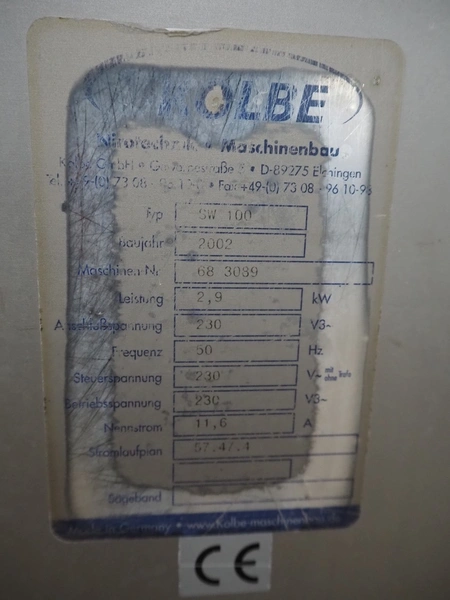 KOLBE
Nirotechnik • Maschinenbau
Kolbe GmbH • D-89275 Elchingen
Fax +49-(0) 73 08 - 96 10-
Typ SW 100
Baujahr 2002
Maschinen-Nr. 68 3089
Leistung 2,9 kW
Anschlußspannung 230 V3~
Frequenz 50 Hz
Steuerspannung 230 V~ mit ohne Trafo
Betriebsspannung 230 V3~
Nennstrom 11,6 A
Stromlaufplan
Sägeband
Made in Germany • www.Kolbe-maschinenbau.de
CE